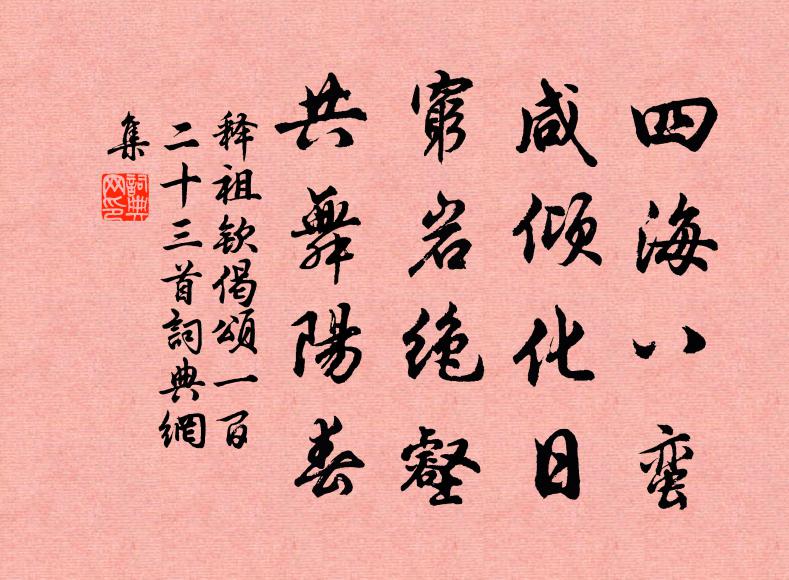 四海八蛮
咸倾化日
窮岩绝壑
共舞陽春
释祖钦偈頌一百
二十三首詞典網
集
詞典
网印